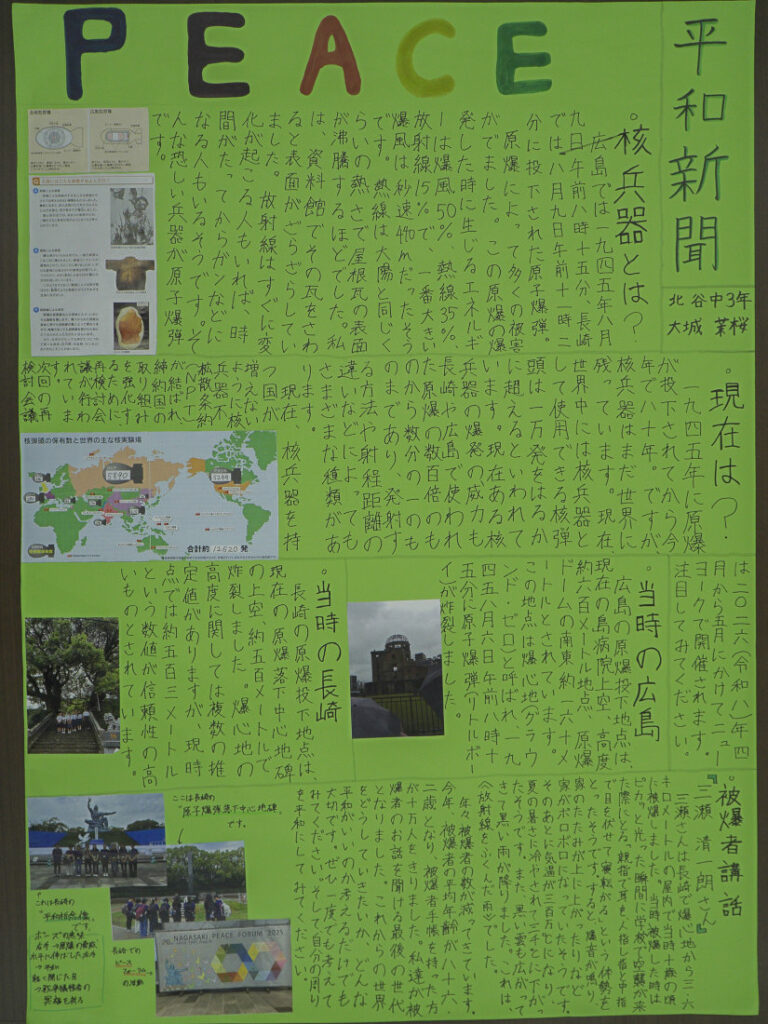 PEACE
平和新聞
北谷中3年
大城 茉桜
。核兵器とは？
広島では一九四五年八月
九日午前八時十五分、長崎
では八月九日午前十一時二
分に投下された原子爆弾。
原爆によって多くの被害
がでました。この原爆の爆
発した時に生じるエネルギ
ーは爆風50%、熱線35%、
放射線15%で、一番大きい
爆風は砂速440mだったそう
です。熱線は太陽と同じく
らいの熱さで屋根瓦の表面
が沸騰するほどでした。私
は、資料館でその瓦をさわ
ると表面がざらざらしてい
ました。放射線はすぐに変
化が起こる人もいれば、時
間がたってからガンなどに
なる人もいるそうです。そ
んな恐しい兵器が原子爆弾
です。
。現在は？
一九四五年に原爆
が投下されてから今
年で八十年。ですが
核兵器はまだ世界に
残っています。現在
世界中には核兵器と
して使用できる核弾
頭は一万発をはるか
に超えるといわれて
います。現在ある核
兵器の爆発の威力も
長崎や広島で使われ
た原爆の数百倍のも
のから数分の一のも
のまであり、発射す
る方法や射程距離の
違いなどによっても
さまざまな種類があ
ります。
現在、核兵器を持
つ国が
増えない
ように核
兵器不
拡散条約
(NPT)
が結ばれ
締約国の
取り組み
を強化す
るために
再検討会
議が行わ
れていま
す。
次回の再
検討会議
は二〇二六(令和八)年四
月から五月にかけてニュー
ヨークで開催されます。
注目してみてください。
核弾頭の保有数と世界の主な核実験場
合計約12520発
。当時の広島
広島の原爆投下地点は、
現在の島病院上空、高度
約六百メートル地点、原爆
ドームの南東約一六十メ
ートルとされています。
この地点は爆心地(グラウ
ンド・ゼロ)と呼ばれ、一九
四五八月六日午前八時十
五分に原子爆弾(リトルボー
イ)が炸裂しました。
。当時の長崎
長崎の原爆投下地点は、
現在の原爆落下中心地碑
の上空約五百メートルで
炸裂しました。爆心地の
高度に関しては複数の推
定値がありますが、現時
点では約五百三メートル
という数値が信頼性の高
いものとされています。
。被爆者講話
『三瀬 清一朗さん』
三瀬さんは長崎で爆心地から三.六
キロメートルの屋内で当時十歳の頃
に被爆しました。当時被爆した時は
ピカっと光った瞬間に学校で空襲が来
た際にとる、親指で耳を、人指し指と中指
で目を伏せて、寝転がるという体勢を
とったそうです。すると、爆音が鳴り
家のたたみが上に上がったりなど
家がボロボロになっていたそうです。
そのあとに気温が三百万℃になり、
夏の暑さに冷やされて二千℃に下がっ
たそうです。また、黒い雲も広がって
きて黒い雨が降りました。これは、
(放射線をふくんだ雨)でした。
年々、被爆者の数が減ってきています。
今年、被爆者の平均年齢が八十六.
二歳となり、被爆者手帳を持った方
が十万人をきりました。私達が被
爆者のお話を聞ける最後の世代
となりました。これからの世界
をどうしていきたいか、どんな
平和がいいのか考えるだけでも
大切です。ぜひ一度でも考えて
みてください。そして自分の周り
を平和にしてみてください。
ここは長崎の
"原子爆弾落下中心地碑"
です。
これは長崎の
"平和祈念像"
です。
ポーズの意味
右手→原爆の脅威
水平に伸ばした左手
→平和
軽く閉じた目
→戦争犠牲者の
冥福を祈る
長崎での
ピース
フォーラム
の活動
NAGASAKI PEACE FORUM 2025